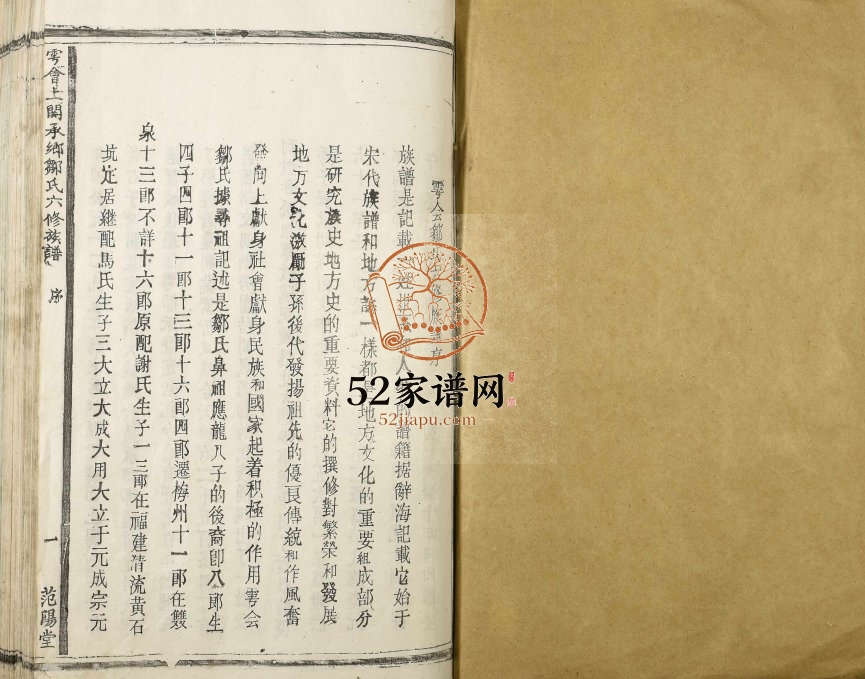 族譜是記載人的譜籍据辭海記載它始于
宋代族譜和地方誌一樣都是地方文化的重要組成部分
是研究族史地方史的重要資料它的撰修對繁榮和發展
地方文化激勵子孫後代發揚祖先的優良傳統和作風奮
發向上獻身社會獻身民族和國家起着积極的作用雩会
鄒氏據尋祖記述是鄒氏鼻祖應龍八子的後裔卽八郎生
四子四郎十一郎十三郎十六郎四郎遷梅州十一郎在
泉十三郎不詳十六郎原配謝氏生子一三郎在福建清流黄石
坑定居継配馬氏生子三大立大成大用大立于元成宗元
雩會上關承鄉鄒氏六修族譜
序
一
范陽堂
52家谱网
52jiapu.com